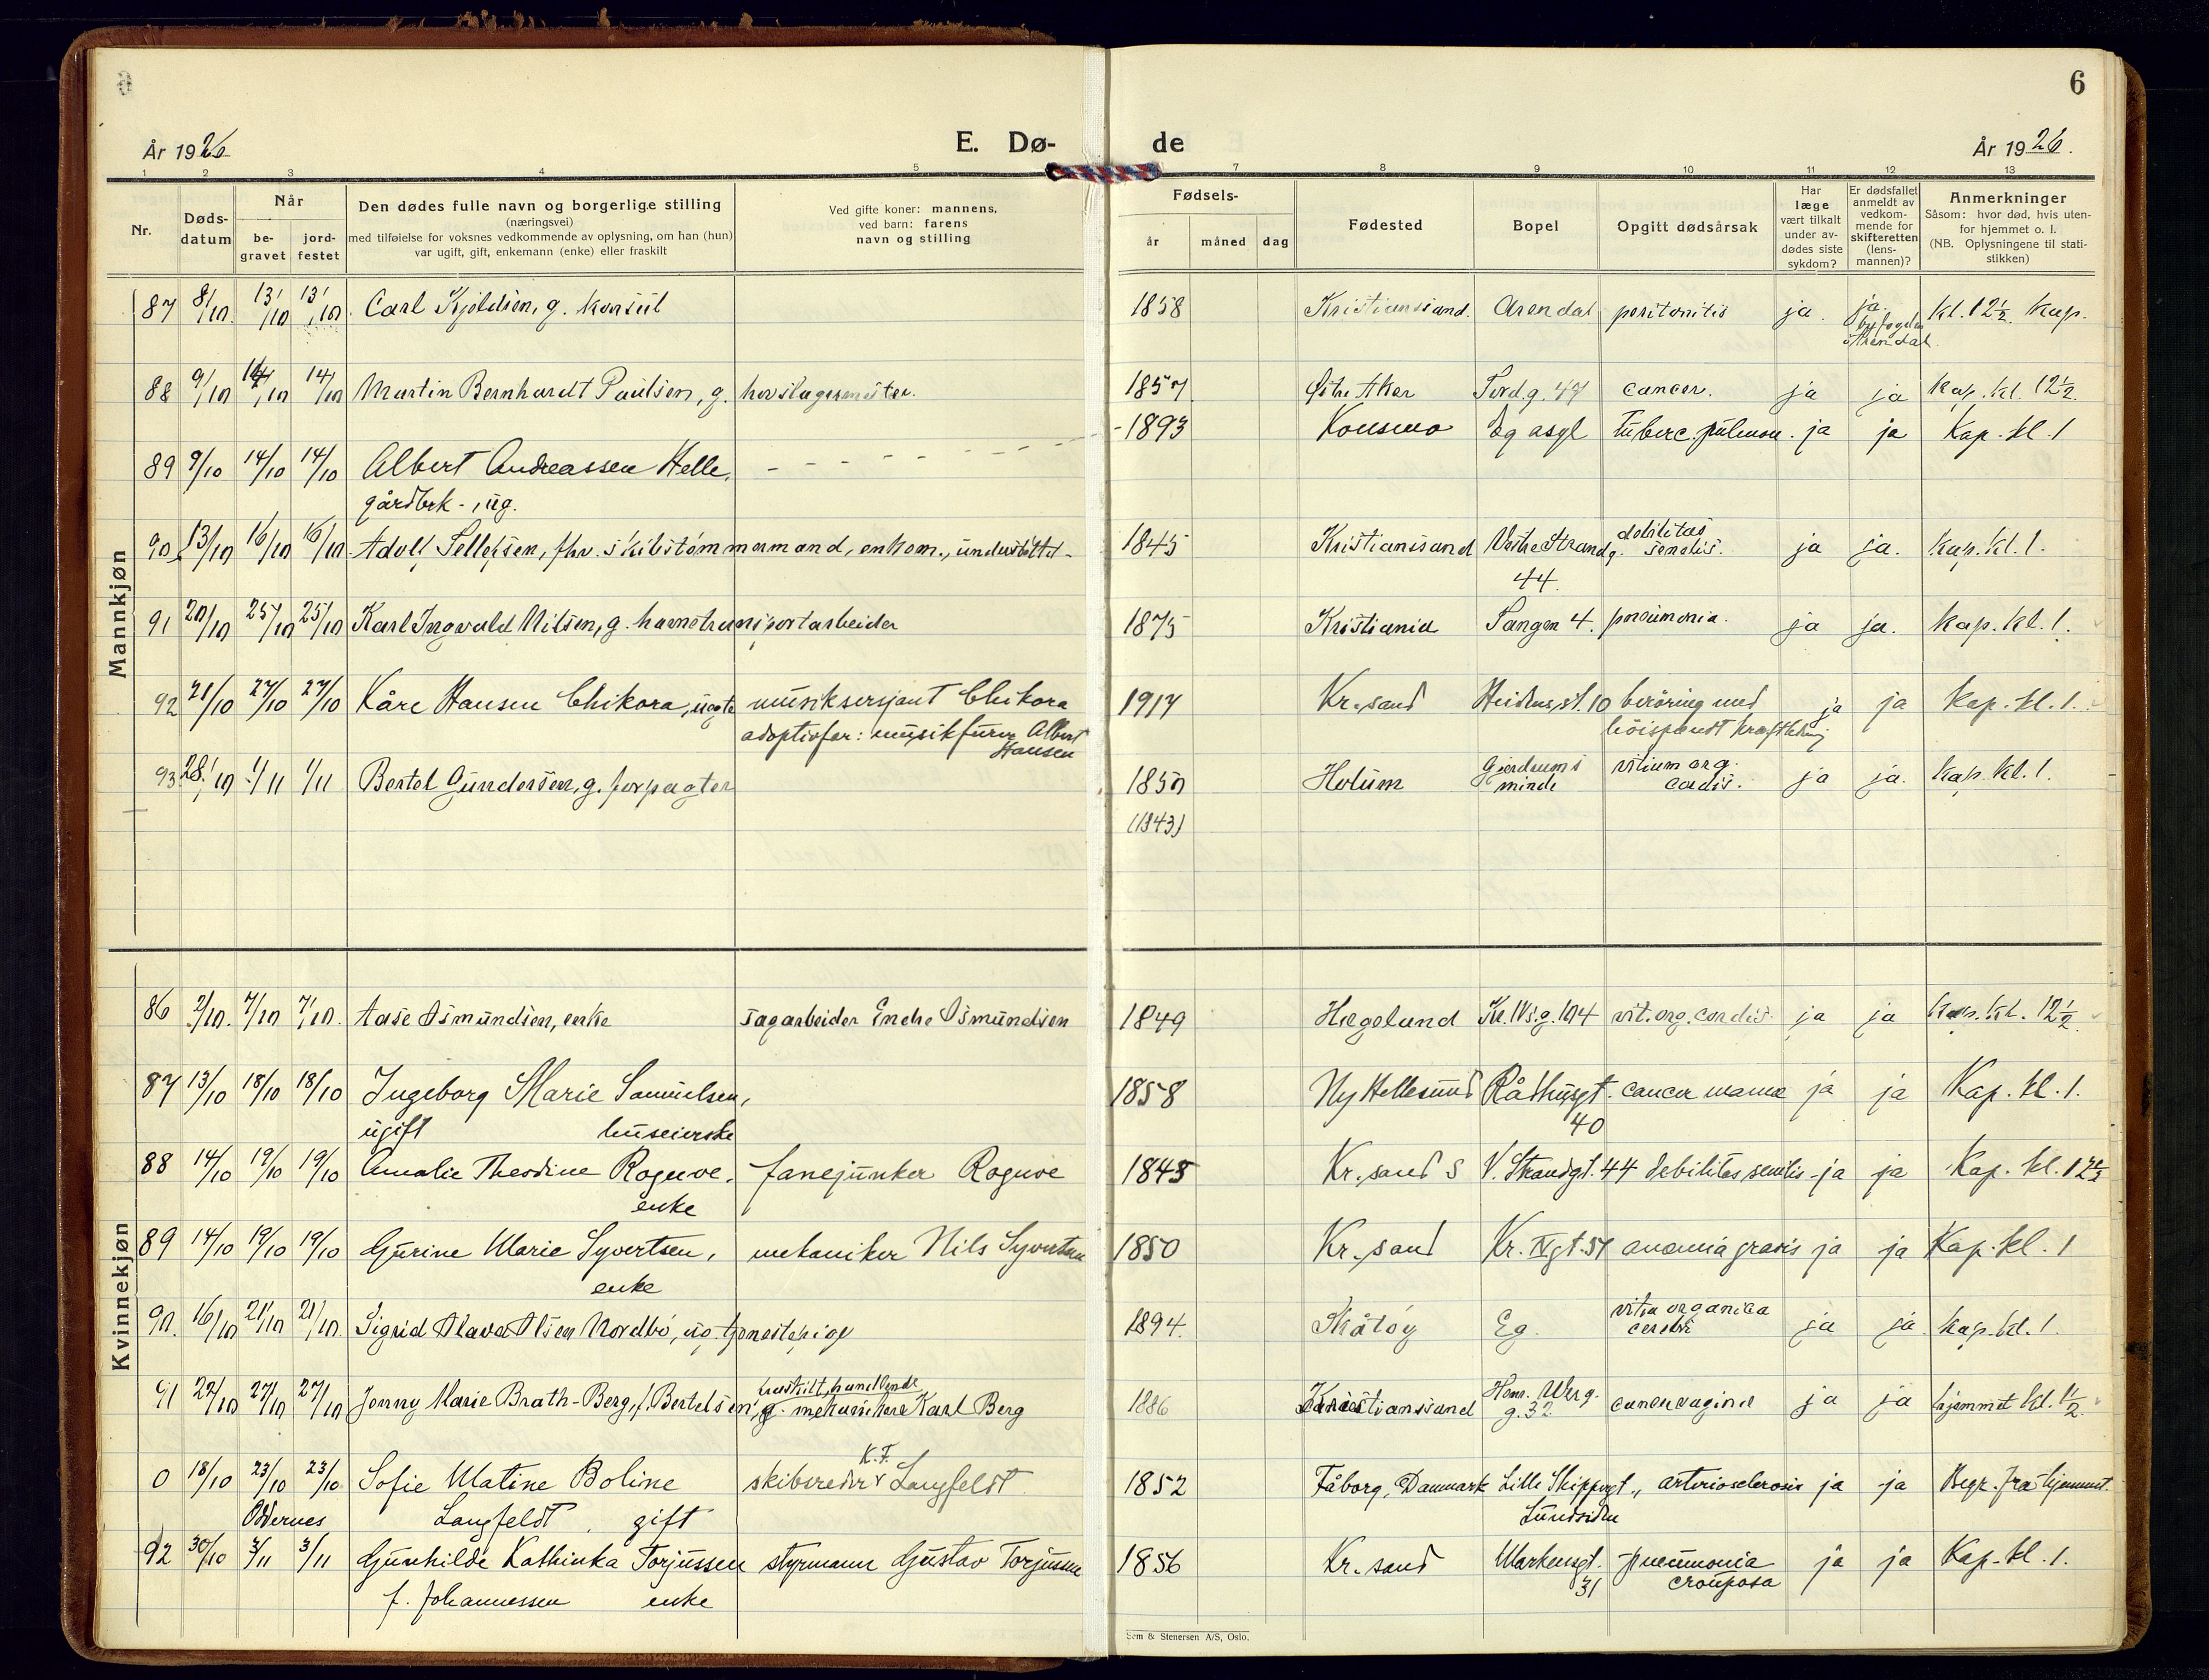 6
År 1926 E. Dø- de År 1926.
1 2 3 4 5 7 8 9 10 11 12 13
Nr. Døds-datum Når be-gravet jord-festet
Den dødes fulle navn og borgerlige stilling
(næringsvei)
med tilføielse for voksnes vedkommende av oplysning, om han (hun)
var ugift, gift, enkemann (enke) eller fraskilt
Ved gifte koner: mannens,
ved barn: farens
navn og stilling
Fødsels- år måned dag
Fødested Bopel Opgitt dødsårsak
Har læge vært tilkalt under av-dødes siste sykdom?
Er dødsfallet anmeldt av vedkom-mende for skifteretten (lens-mannen)?
Anmerkninger
Såsom: hvor død, hvis uten-
for hjemmet o. l.
(NB. Oplysningene til stati-
stikken)
Mannkjøn
87 8/10. 13/10 13/10. Carl Kjeldsen, g. konsul 1858 Kristianssand. Arendal peritonitis ja. ja. kl. 12½. Kap.
byfogden
Arendal.
88 9/10 14/10 14/10 Martin Bernhardt Paulsen, g. hovslagermester. 1857 Østre Aker Tord.g. 47 cancer. ja ja Kap. kl. 12½.
89 9/10 14/10 14/10 Albert Andreassen Helle, 1893 Konsmo Eg asyl tuberc. pulmon. ja ja Kap. kl. 1
gårdbrk -, ug.
90 13/10 16/10 16/10 Adolf Tellefsen, fhv. skibstømmermand, enkem., understøttet - 1845 Kristianssand Vestre Strandg. debilitas senilis. ja ja. Kap. kl. 1.
44
91 20/10 25/10 25/10 Karl Ingvald Nilsen, g. havnetransportarbeider 1875 Kristiania Tangen 4. pneumonia. ja ja. Kap. kl. 1.
92 21/10 27/10 27/10 Kåre Hansen Chikora, uegte musiksersjant Chikora 1917 Kr.sand 10 berøring med ja ja Kap. kl. 1.
adoptivfar: musikfurer Albert Hansen høispændt kraftledning
93 28/10 1/11 1/11 Bertel Gundersen, g. forpagter 1850 Holum Gjerdrums minde vitium org. cordis. ja ja. Kap. kl. 1.
(1843)
Kvinnekjøn
86 2/10. 7/10 7/10. Aase Osmundsen, enke sagarbeider Endre Osmundsen 1849 Hægeland Kr.IVs.g.104 vit. org. cordis. ja ja Kap. kl. 12½.
87 13/10 18/10 18/10 Ingeborg Marie Samuelsen, 1858 Ny Hellesund Rådhusgt. cancer mama ja ja Kap. kl. 1.
ugift huseierske 40
88 14/10 19/10 19/10 Amalie Theodine Roguve. fanejunker Roguve 1845 Kr.sand S V. Strandgt. 44 debilitas senilis - ja ja Kap. kl. 12½
enke
89 14/10 19/10 19/10 Gurine Marie Syvertsen, mekaniker Nils Syvertsen 1850 Kr.sand Kr. IVgt. 57 anæmia gravis ja ja Kap. kl. 1
enke
90. 16/10 21/10 21/10. Sigrid Olava Olsen Nordbö, ug. tjenestepige 1894. Skåtøy Eg. vitia organica cerebri ja ja Kap. kl. 1.
91 22/10 27/10 27/10 Jenny Marie Brath-Berg, f. Bertelsen, g. mekanikere Karl Berg 1886 Kristianssand Henr. Werg. g. 32 cancer vaginæ ja ja hjemmet kl. 1½.
fraskilt, handlende
0 18/10 23/10 23/10 Sofie Matine Boline skibsreder K.F. Langfeldt 1852 Fåborg, Danmark Lille Skippergt., arteriosclerosis ja ja Begr. fra hjemmet
Oddernes Langfeldt, gift Lundsiden
92 30/10 3/11 3/11 Gunhilde Kathinka Torjussen styrmann Gustav Torjussen 1856 Kr.sand Markensgt. pneumonia ja ja Kap. kl. 1.
f. Johannessen enke 31 crouposa
Sem & Stenersen A/S, Oslo.